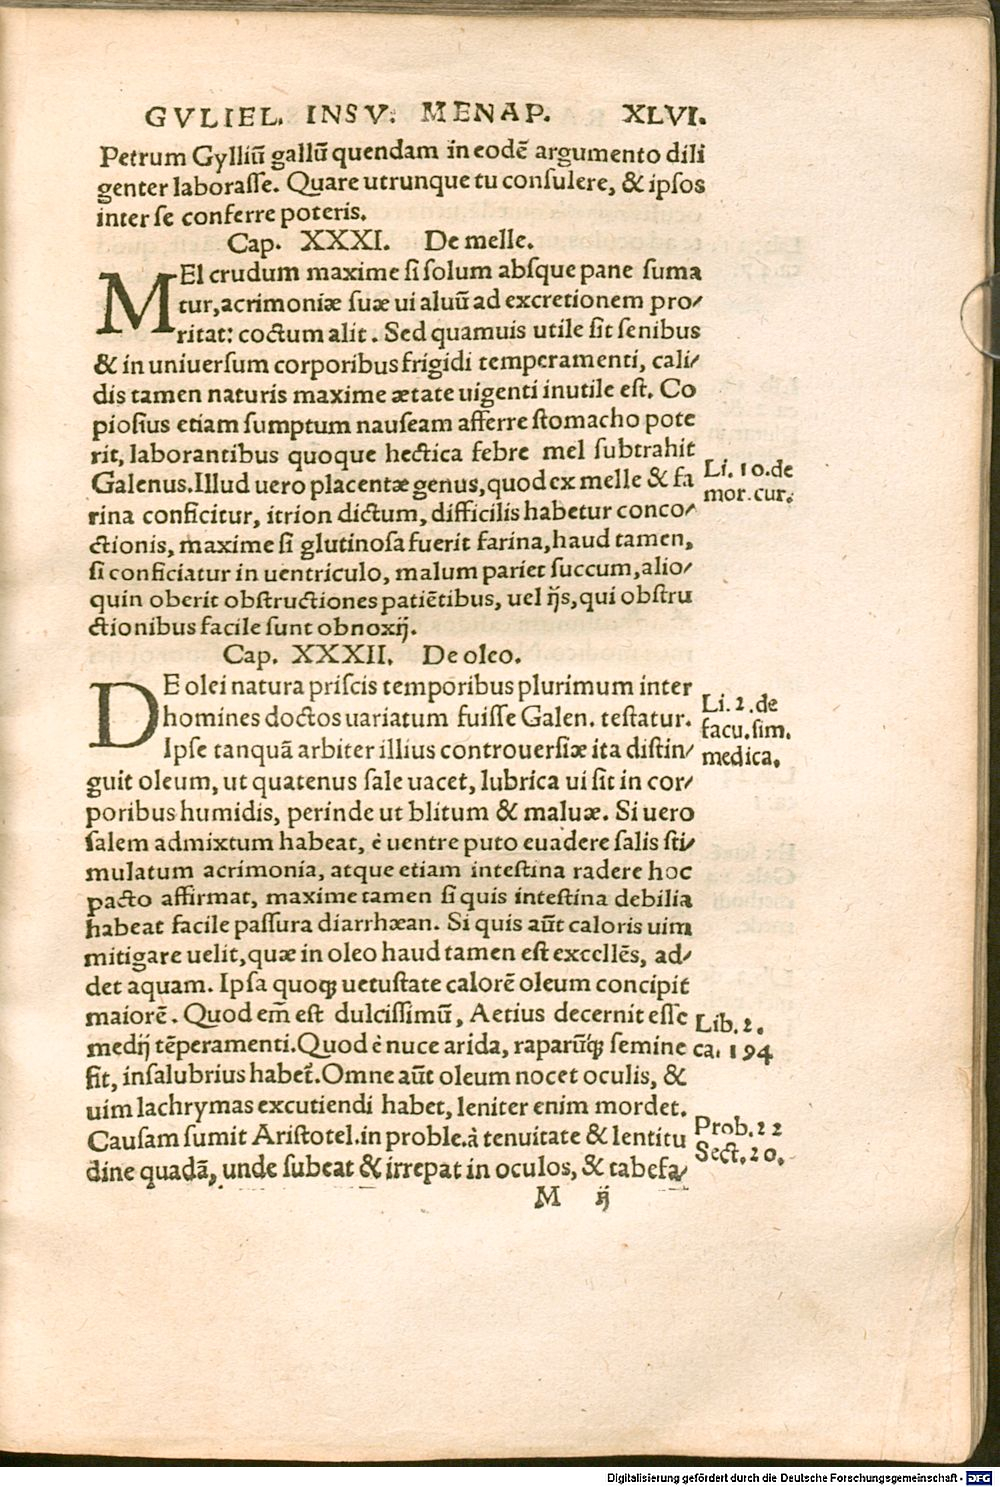 GVLIEL. INSV: MENAP. XLVI.
Petrum Gylliũ gallũ quendam in eodẽ argumento dili
genter laborasse. Quare utrunque tu consulere, & ipsos
inter se conferre poteris.
Cap. XXXI. De melle.
MEl crudum maxime si solum absque pane suma
tur, acrimoniæ suæ ui aluũ ad excretionem pro-
ritat: coctum alit. Sed quamuis utile sit senibus
& in uniuersum corporibus frigidi temperamenti, cali-
dis tamen naturis maxime ætate uigenti inutile est. Co
piosius etiam sumptum nauseam afferre stomacho pote
rit, laborantibus quoque hectica febre mel subtrahit
Galenus. Illud uero placentæ genus, quod ex melle & fa
rina conficitur, itrion dictum, difficilis habetur conco-
ctionis, maxime si glutinosa fuerit farina, haud tamen,
si conficiatur in uentriculo, malum pariet succum, alio-
quin oberit obstructiones patiẽtibus, uel ijs, qui obstru
ctionibus facile sunt obnoxij.
Li. 10. de
mor. cur.
Cap. XXXII. De oleo.
DE olei natura priscis temporibus plurimum inter
homines doctos uariatum fuisse Galen. testatur.
Ipse tanquã arbiter illius controuersiæ ita distin-
guit oleum, ut quatenus sale uacet, lubrica ui sit in cor-
poribus humidis, perinde ut blitum & maluæ. Si uero
salem admixtum habeat, è uentre puto euadere salis sti-
mulatum acrimonia, atque etiam intestina radere hoc
pacto affirmat, maxime tamen si quis intestina debilia
habeat facile passura diarrhæan. Si quis aũt caloris uim
mitigare uelit, quæ in oleo haud tamen est excellẽs, ad-
det aquam. Ipsa quoqꝫ uetustate calorẽ oleum concipit
maiorẽ. Quod em̃ est dulcissimũ, Aetius decernit esse
medij tẽperamenti. Quod è nuce arida, raparũqꝫ semine
fit, insalubrius habet̃. Omne aũt oleum nocet oculis, &
uim lachrymas excutiendi habet, leniter enim mordet.
Causam sumit Aristotel. in proble. à tenuitate & lentitu
dine quadã, unde subeat & irrepat in oculos, & tabefa-
Li. 2. de
facu. sim.
medica.
Lib. 2.
ca. 194
Prob. 22
Sect. 20.
M ij
Digitalisierung gefördert durch die Deutsche Forschungsgemeinschaft - DFG